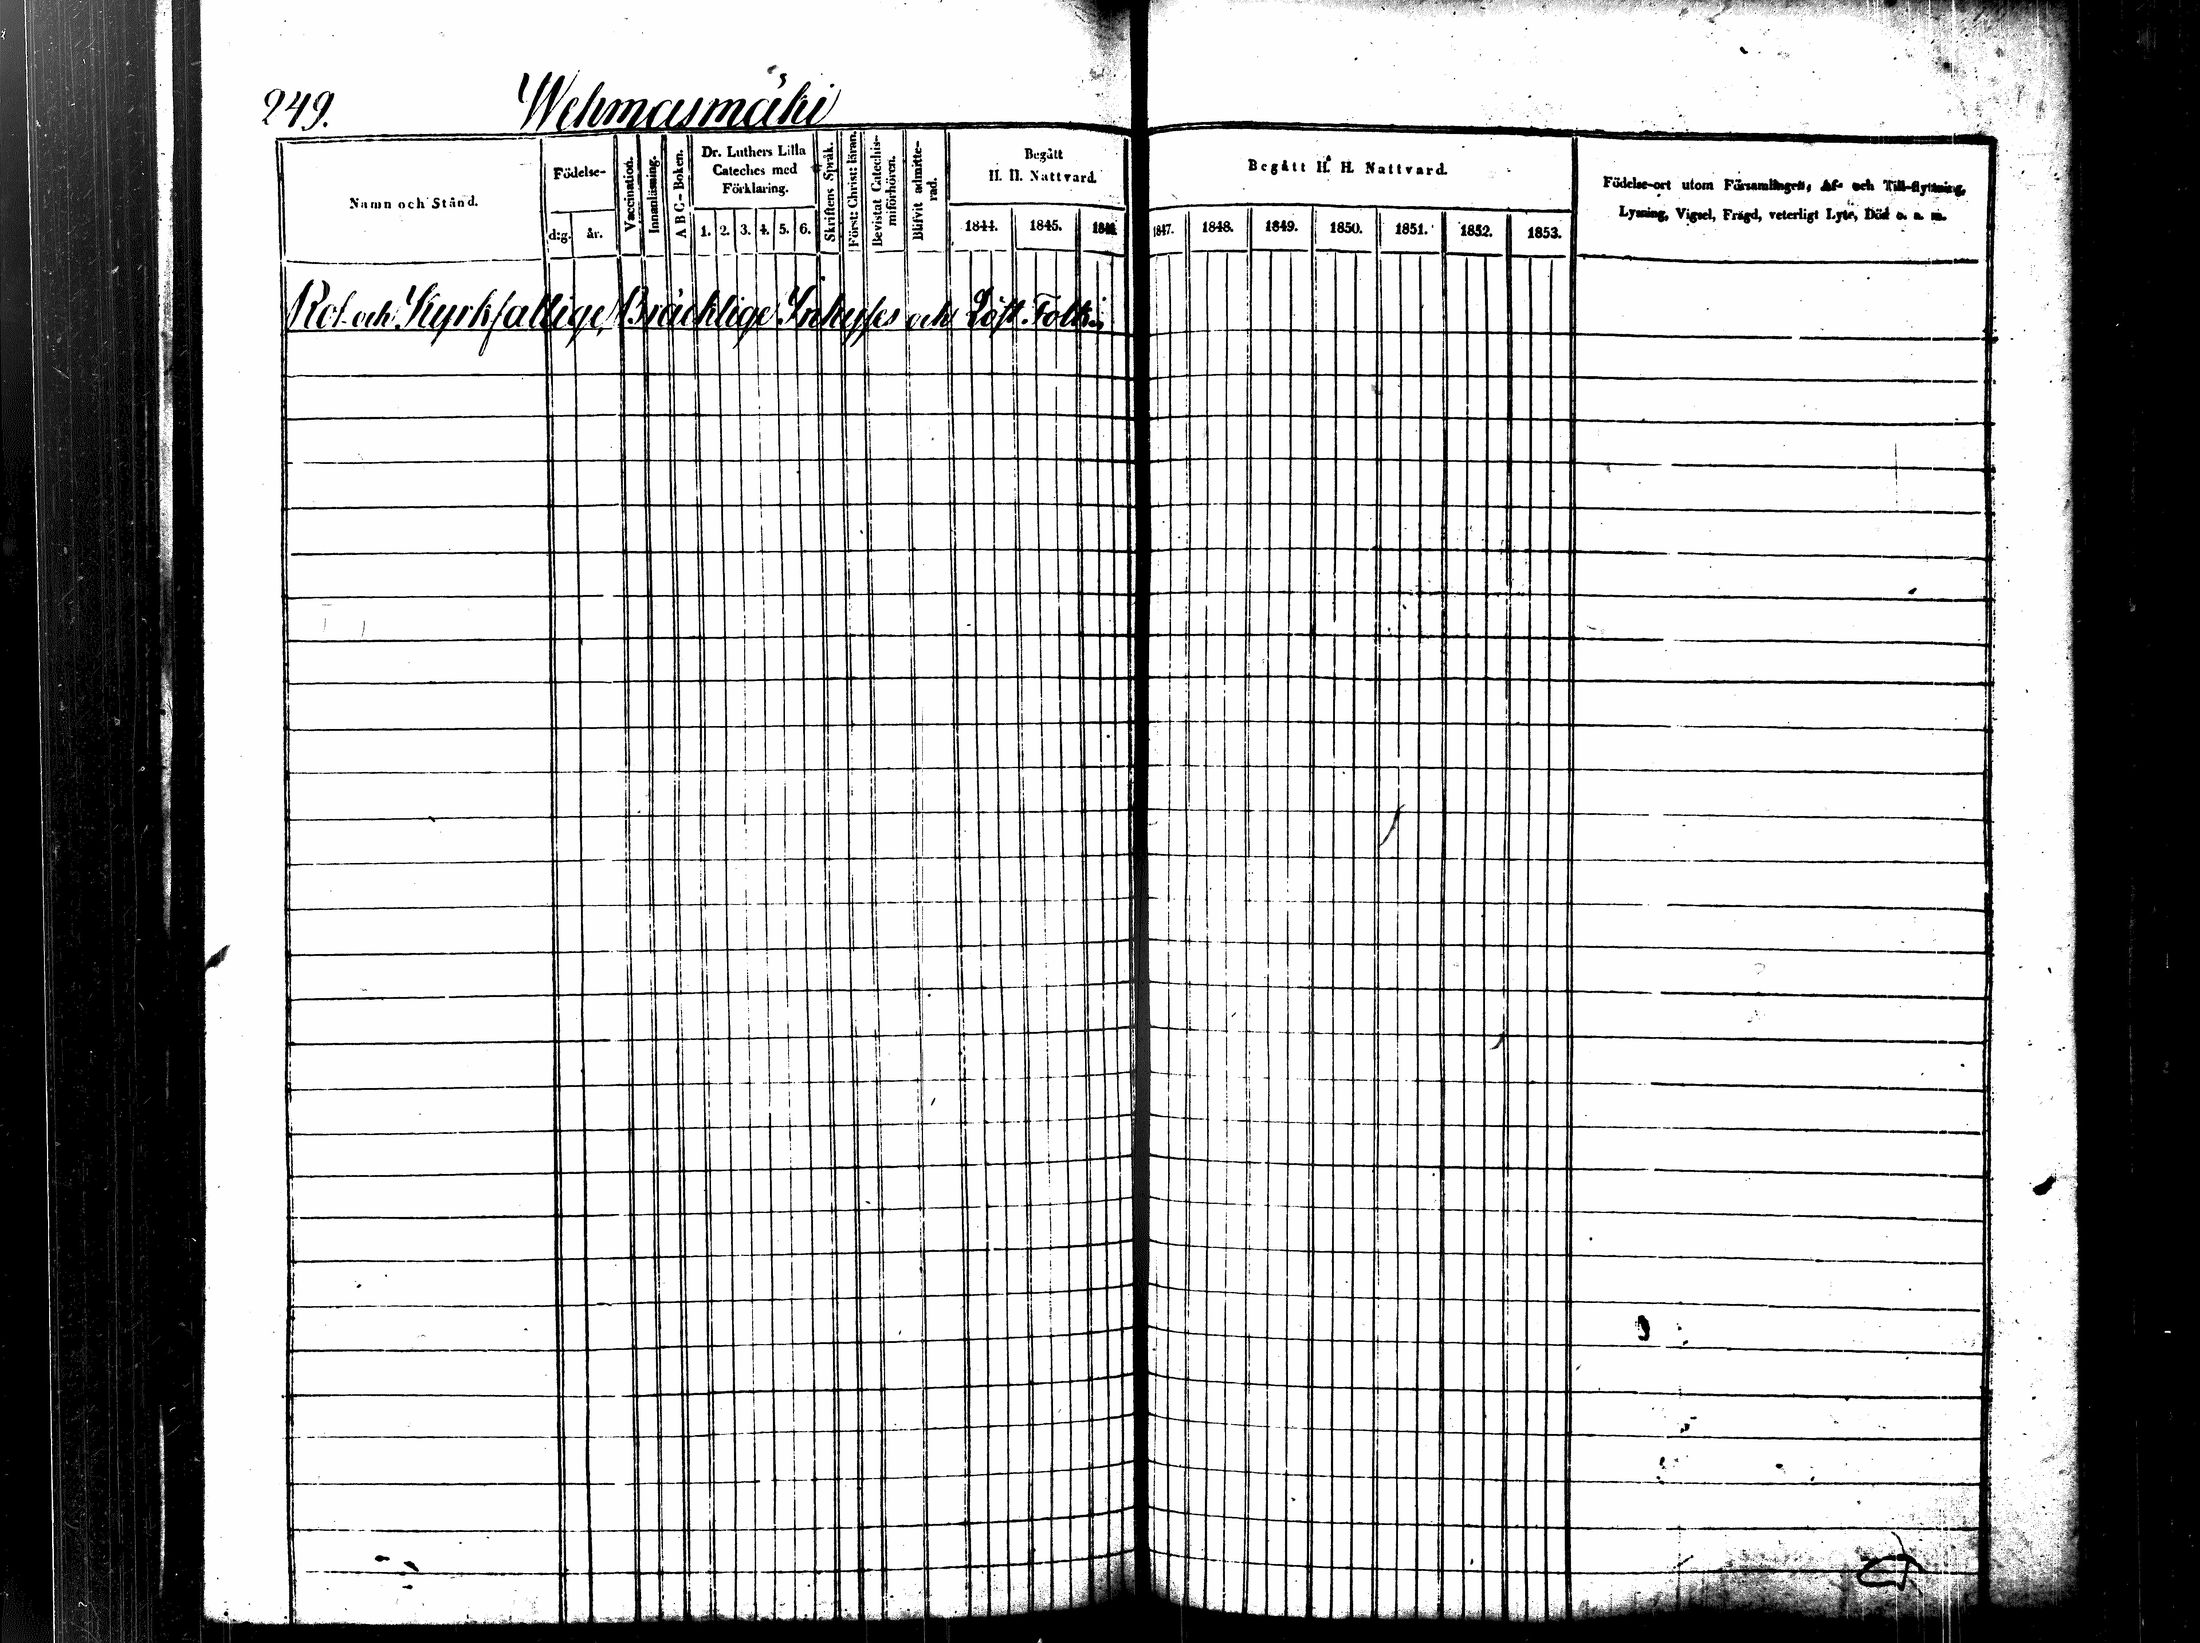 249. Wehmasmäki
Namn och Stånd.
Födelse-
d:g. år.
Vaccination.
Innanläsning.
A B C-Boken.
Dr. Luthers Lilla
Cateches med
Förklaring.
1. 2. 3. 4. 5. 6.
Skriftens Språk.
Först: Christ: läran.
Bevistat Catechis-
miförhören.
Blifvit admitte-
rad.
Begått
H. H. Nattvard.
1844. 1845. 1846.
Begått H. H. Nattvard.
1847. 1848. 1849. 1850. 1851. 1852. 1853.
Födelse-ort utom Församlingen, Af- och Till-flyttning,
Lysning, Vigsel, Frägd, veterligt Lyte, Död o. s. m.
Rot- och Kyrkfattige, Bräcklige Inhyses och Löst Folk.